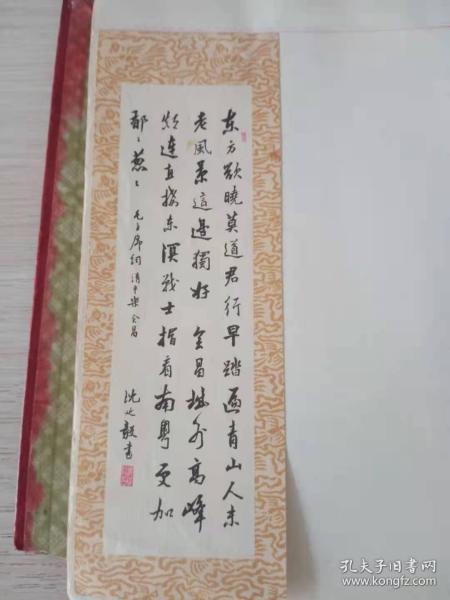 东方欲晓莫道君行早踏遍青山人未
老風景這邊獨好 会昌城外高峰
颠连直接东溟战士指看南粤更加
郁々葱々 毛主席词清平樂会昌
沈 毅书
孔夫子旧书网
www.kongfz.com